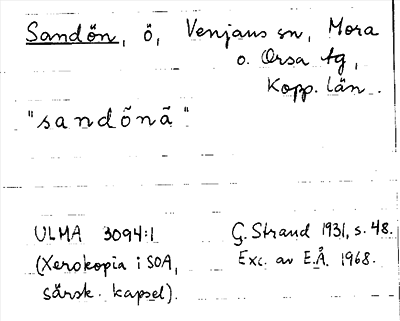 Sandön, ö, Venjans sn, Mora
o. Orsa tg,
Kopp. län.
"sandõnã"
ULMA 3094:1
(Xerokopia i SOA,
särsk. kapsel).
G. Strand 1931, s. 48.
Exc. av E.Å. 1968.